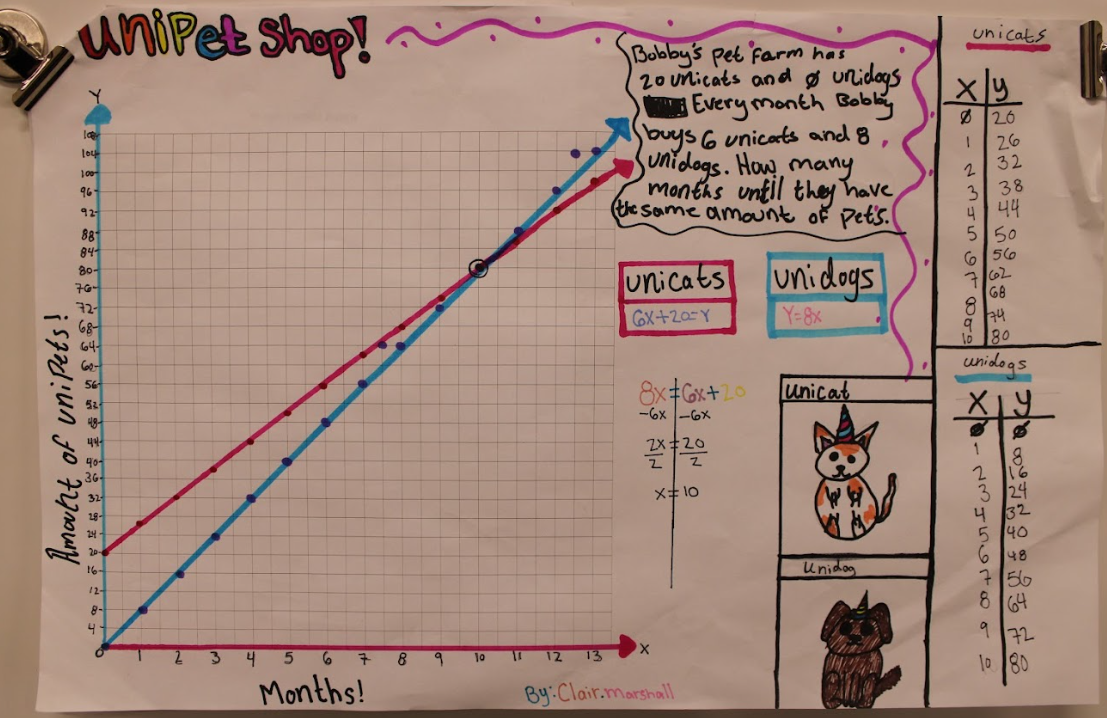 UniPet Shop!
Bobby's pet farm has
20 unicats and 0 unidogs
Every month Bobby
buys 6 unicats and 8
unidogs. How many
months until they have
the same amount of pets.
Y
108
104
100
96
92
88
84
80
76
72
68
64
60
56
52
48
44
40
36
32
28
24
20
16
12
8
4
0
1 2 3 4 5 6 7 8 9 10 11 12 13
X
Amount of unipets!
Months!
By: Clair.marshall
unicats
6x+20=Y
unidogs
Y=8x
8x=6x+20
-6x -6x
2x = 20
2 2
x = 10
unicat
Unidog
unicats
X Y
0 20
1 26
2 32
3 38
4 44
5 50
6 56
7 62
8 68
9 74
10 80
unidogs
X Y
0 0
1 8
2 16
3 24
4 32
5 40
6 48
7 56
8 64
9 72
10 80